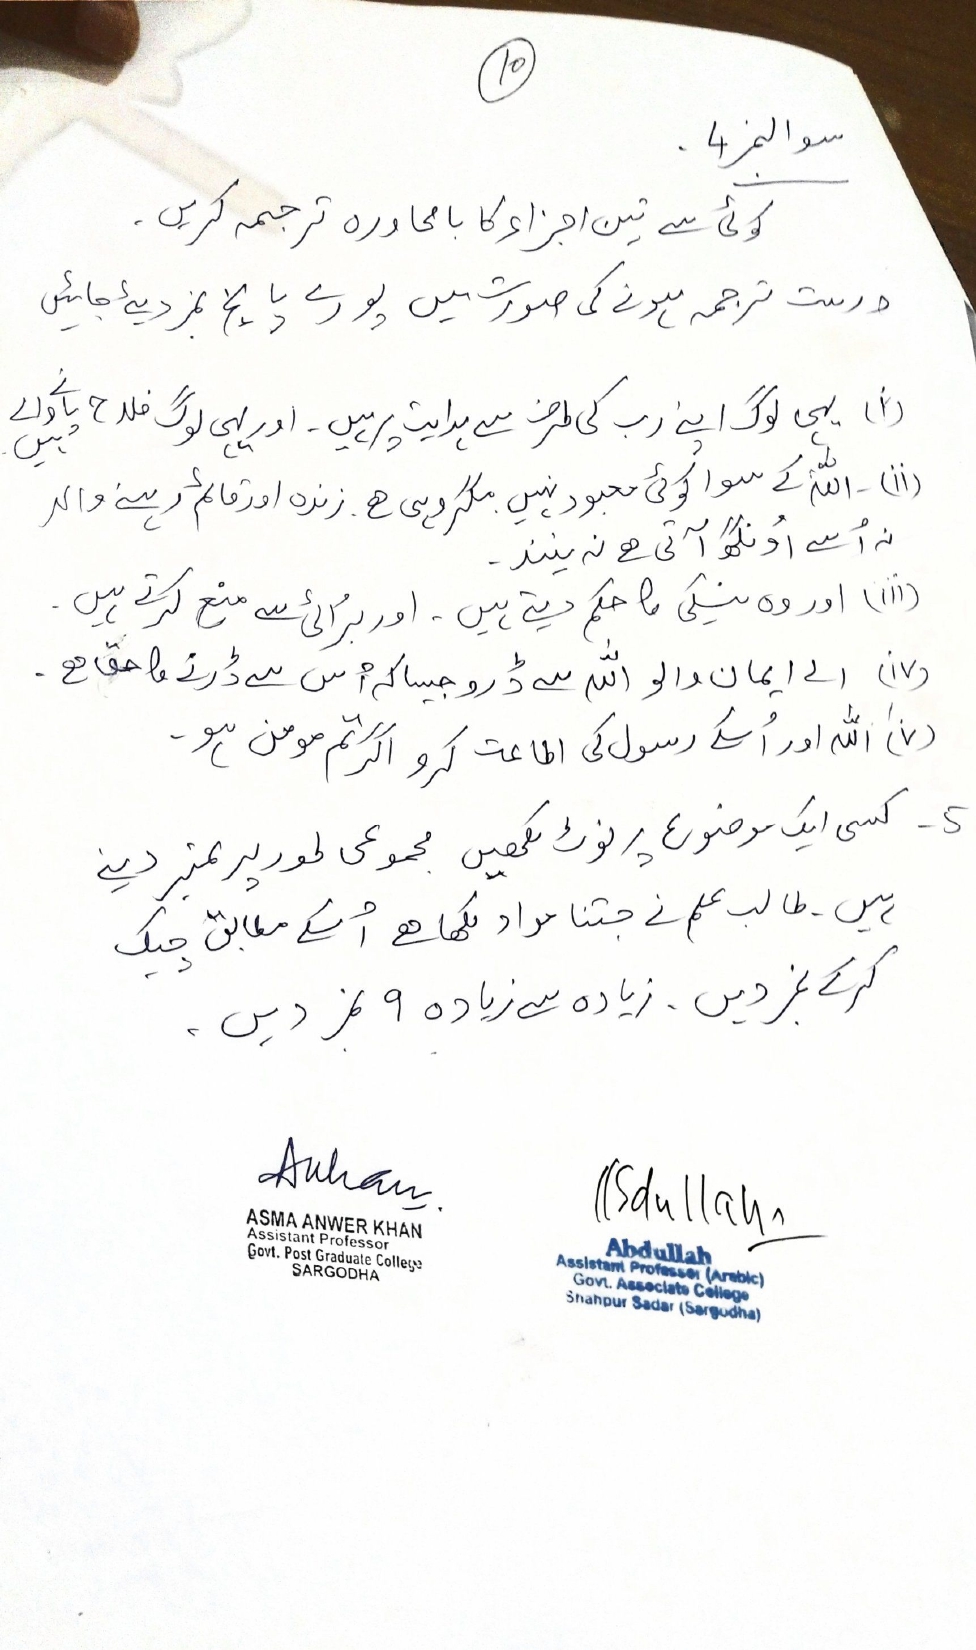 10
سوال نمبر 4.
کوئی سے تین اجزاء کا بامحاورہ ترجمہ کریں۔
درست ترجمہ ہونے کی صورت میں پورے پانچ نمبر دیئے جائیں
(i) یہی لوگ اپنے رب کی طرف سے ہدایت پر ہیں۔ اور یہی لوگ فلاح پانے والے ہیں۔
(ii)۔ اللہ کے سوا کوئی معبود نہیں۔ مگر وہی ہے۔ زندہ اور قائم رہنے والا
نہ اُسے اُونگھ آتی ہے نہ نیند۔
(iii) اور وہ نیکی کا حکم دیتے ہیں۔ اور بُرائی سے منع کرتے ہیں۔
(iv) اے ایمان والو اللہ سے ڈرو جیسا کہ اُس سے ڈرنے کا حق ہے۔
(v) اللہ اور اُسکے رسول کی اطاعت کرو اگر تم مومن ہو۔
5۔ کسی ایک موضوع پر نوٹ لکھیں مجموعی طور پر نمبر دینے
ہیں۔ طالب علم نے جتنا مواد لکھا ہے اُسکے مطابق چیک
کرکے نمبر دیں۔ زیادہ سے زیادہ ۹ نمبر دیں۔
Abdullah
ASMA ANWER KHAN
Assistant Professor
Govt. Post Graduate College
SARGODHA
Abdullah
Assistant Professor (Arabic)
Govt. Associate College
Shahpur Sadar (Sargodha)